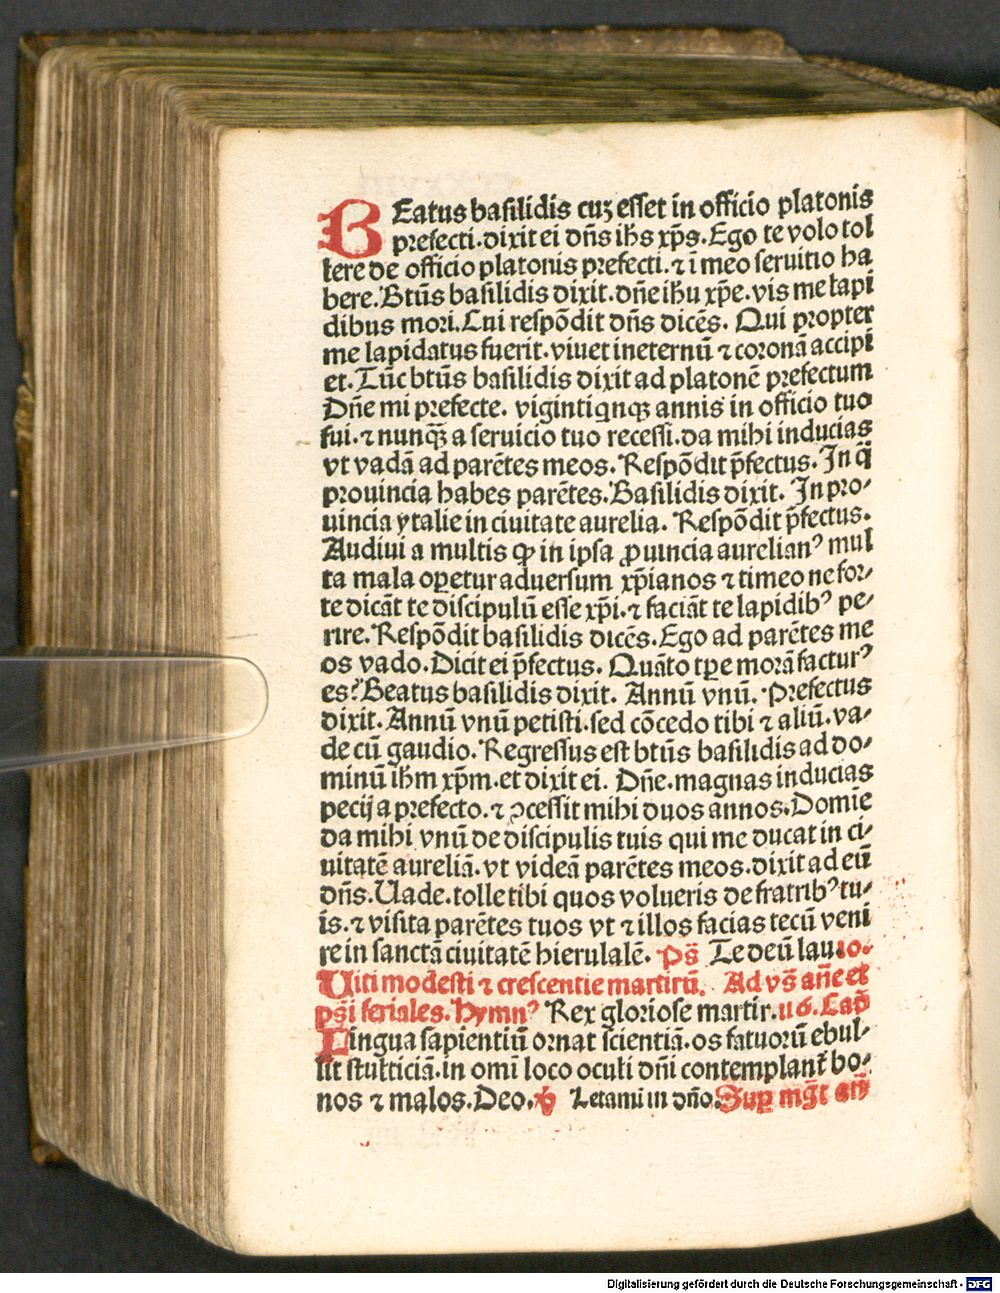 BEatus basilidis cuꝫ esset in officio platonis
prefecti. dixit ei dn̄s ihs xp̄s. Ego te volo tol
lere de officio platonis prefecti. ⁊ ī meo seruitio ha
bere. Btūs basilidis dixit. dn̄e ihu xp̄e. vis me lapi
dibus mori. Cui respōdit dn̄s dicēs. Qui propter
me lapidatus fuerit. viuet in eternū ⁊ coronā accipi
et. Tūc btūs basilidis dixit ad platonē prefectum
Dn̄e mi prefecte. viginti qnqꝫ annis in officio tuo
fui. ⁊ nunqꝫ̄ a seruicio tuo recessi. da mihi inducias
vt vadā ad parētes meos. Respōdit p̄fectus. In q̄
prouincia habes parētes. Basilidis dixit. In pro⸗
uincia ytalie in ciuitate aurelia. Respōdit p̄fectus.
Audiui a multis ꝙ in ipsa ꝓuincia aurelianꝰ mul
ta mala oꝑetur aduersum xp̄ianos ⁊ timeo ne for⸗
te dicāt te discipulū esse xp̄i. ⁊ faciāt te lapidibꝰ pe⸗
rire. Respōdit basilidis dicēs. Ego ad parētes me
os vado. Dicit ei p̄fectus. Quāto tꝑe morā facturꝰ
es? Beatus basilidis dixit. Annū vnū. Prefectus
dixit. Annū vnū petisti. sed cōcedo tibi ⁊ aliū. va⸗
de cū gaudio. Regressus est btūs basilidis ad do⸗
minū ihm xp̄m. et dixit ei. Dn̄e. magnas inducias
pecij a prefecto. ⁊ ꝯcessit mihi duos annos. Domīe
da mihi vnū de discipulis tuis qui me ducat in ci⸗
uitatē aureliā. vt videā parētes meos. dixit ad eū
dn̄s. Uade. tolle tibi quos volueris de fratribꝰ tu⸗
is. ⁊ visita parētes tuos vt ⁊ illos facias tecū veni
re in sanctā ciuitatē hierusalē. Ps̄ Te deū lau. 10.
Uiti modesti ⁊ crescentie martirū. Ad vs̄ an̄e et
ps̄i feriales. Hymnꝰ Rex gloriose martir. u6. Cap̄
Lingua sapientiū ornat scientiā. os fatuorū ebul⸗
lit stulticiā. in omī loco oculi dn̄i contemplant̄ bo⸗
nos ⁊ malos. Deo. ℣ Letami in dn̄o. Suꝑ mgt̄ an̄
Digitalisierung gefördert durch die Deutsche Forschungsgemeinschaft - DFG